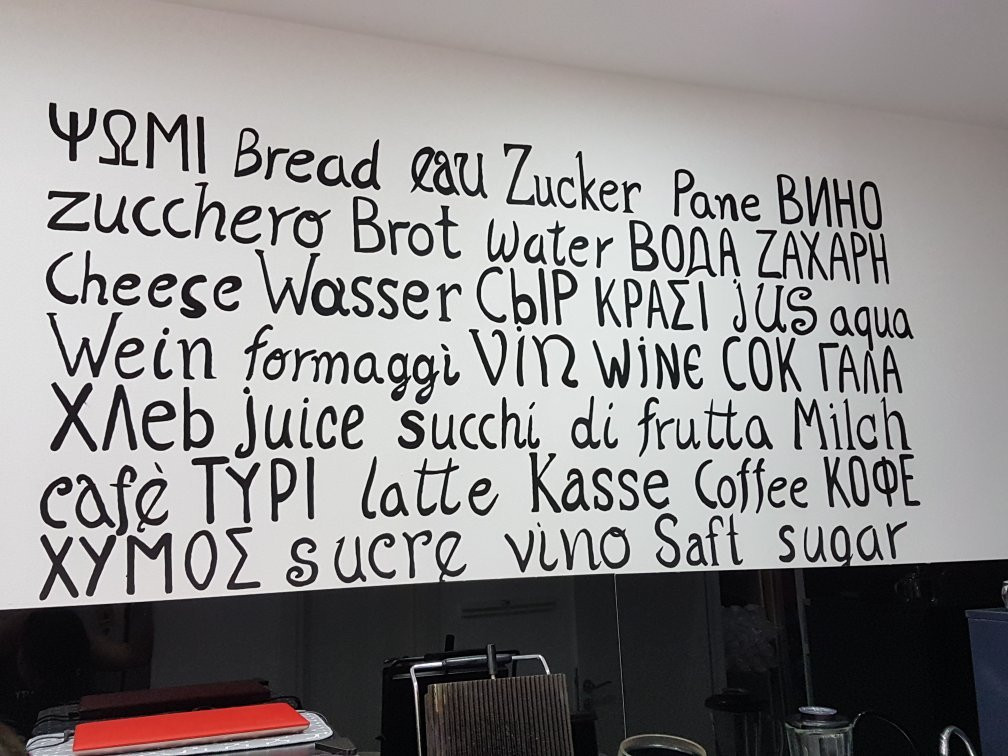 ΨΩΜΙ Bread eau Zucker Pane ВИНО
zucchero Brot water ВОДА ΖΑΧΑΡΗ
Cheese Wasser СЫР ΚΡΑΣΙ jus aqua
Wein formaggi Vin WiNE СОК ΓΑΛΑ
Хлеb juice succhi di frutta Milch
cafè ΤΥΡΙ latte Kasse Coffee КОФЕ
ΧΥΜΟΣ sucre vino Saft sugar